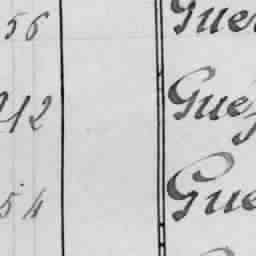 56 Guer
212 Gué
54 Gue